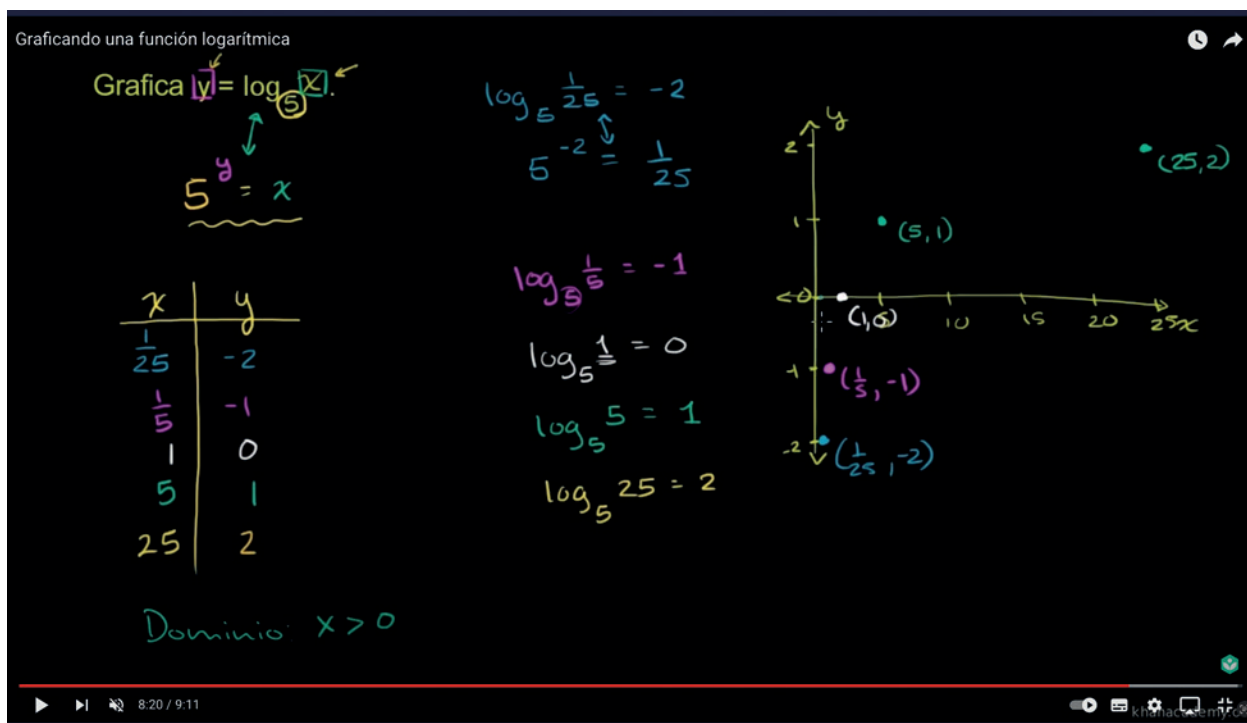 Graficando una función logarítmica
Grafica y = log₅ x.
5^y = x
x y
1/25 -2
1/5 -1
1 0
5 1
25 2
Dominio: x > 0
log₅ 1/25 = -2
5^-2 = 1/25
log₅ 1/5 = -1
log₅ 1 = 0
log₅ 5 = 1
log₅ 25 = 2
y
2
(25,2)
1
(5,1)
0
(1,0)
5 10 15 20 25 x
-1
(1/5,-1)
-2
(1/25,-2)
8:20 / 9:11